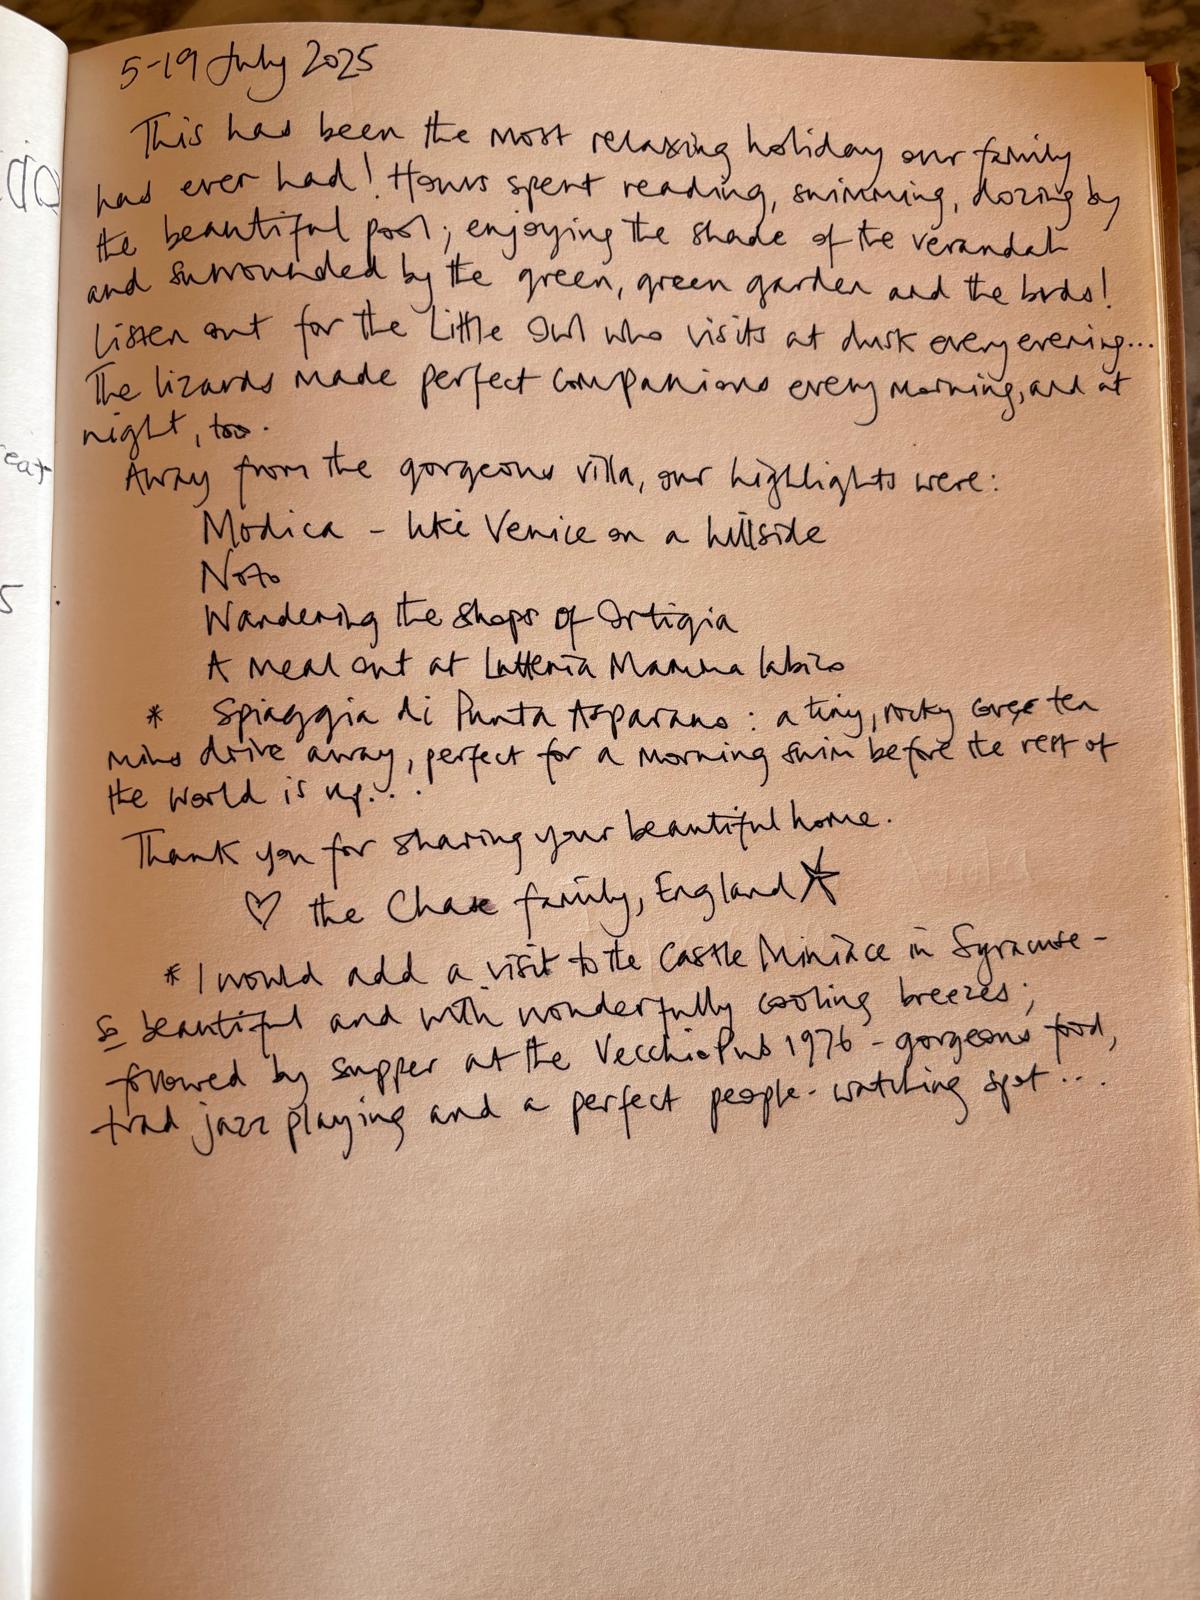 5-19 July 2025
This has been the most relaxing holiday our family
has ever had! Hours spent reading, swimming, dozing by
the beautiful pool; enjoying the shade of the verandah
and surrounded by the green, green garden and the birds!
Listen out for the Little Owl who visits at dusk every evening...
The lizards made perfect companions every morning, and at
night, too.
Away from the gorgeous villa, our highlights were:
Modica - like Venice on a hillside
Noto
Wandering the shops of Ortigia
A meal out at Latteria Mamma Iabico
* Spiaggia di Punta Asparano: a tiny, rocky cove ten
mins drive away, perfect for a morning swim before the rest of
the world is up...
Thank you for sharing your beautiful home.
♡ the Chase family, England
* I would add a visit to the Castle Miniace in Syracuse -
so beautiful and with wonderfully cooling breezes;
followed by supper at the Vecchio Pub 1976 - gorgeous food,
trad jazz playing and a perfect people-watching spot...